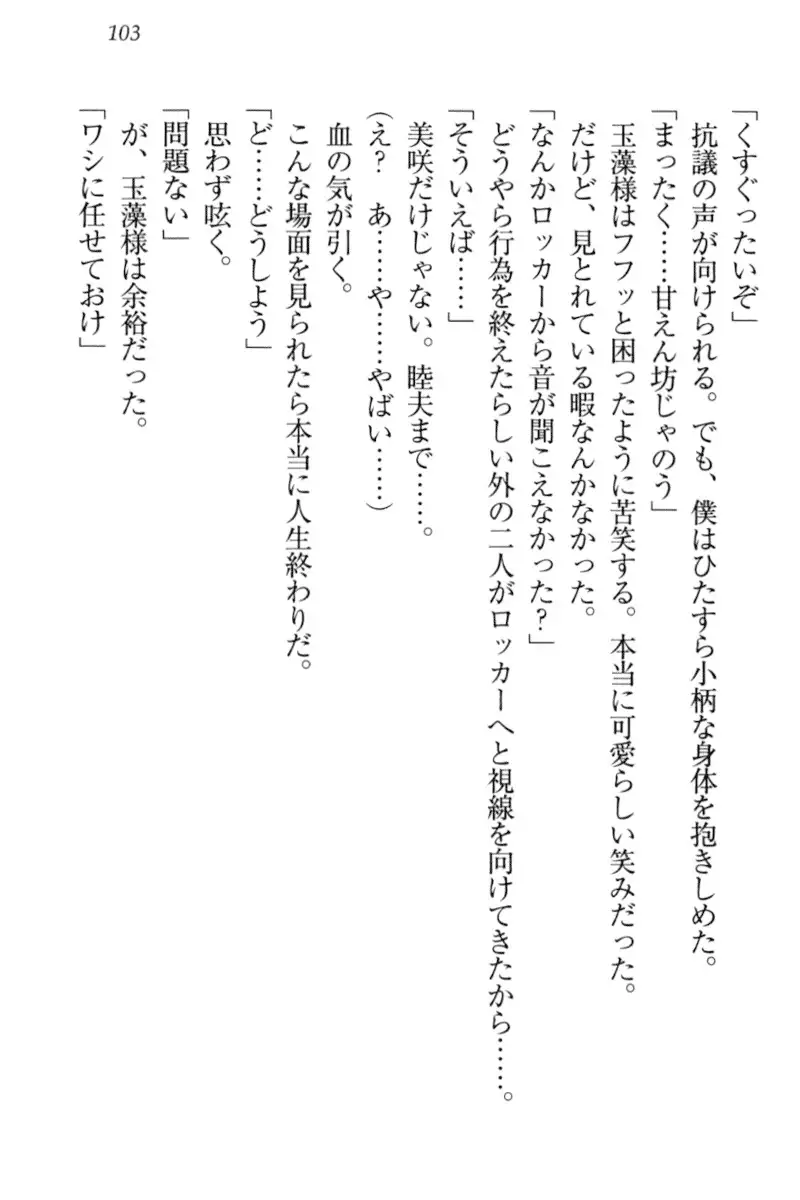 103
「くすぐったいぞ」
抗議の声が向けられる。でも、僕はひたすら小柄な身体を抱きしめた。
「まったく……甘えん坊じゃのう」
玉藻様はフフッと困ったように苦笑する。本当に可愛らしい笑みだった。
だけど、見とれている暇なんかなかった。
「なんかロッカーから音が聞こえなかった?」
どうやら行為を終えたらしい外の二人がロッカーへと視線を向けてきたから……。
「そういえば……」
美咲だけじゃない。睦夫まで……。
(え? あ……や……やばい……)
血の気が引く。
こんな場面を見られたら本当に人生終わりだ。
「ど……どうしよう」
思わず呟く。
「問題ない」
が、玉藻様は余裕だった。
「ワシに任せておけ」